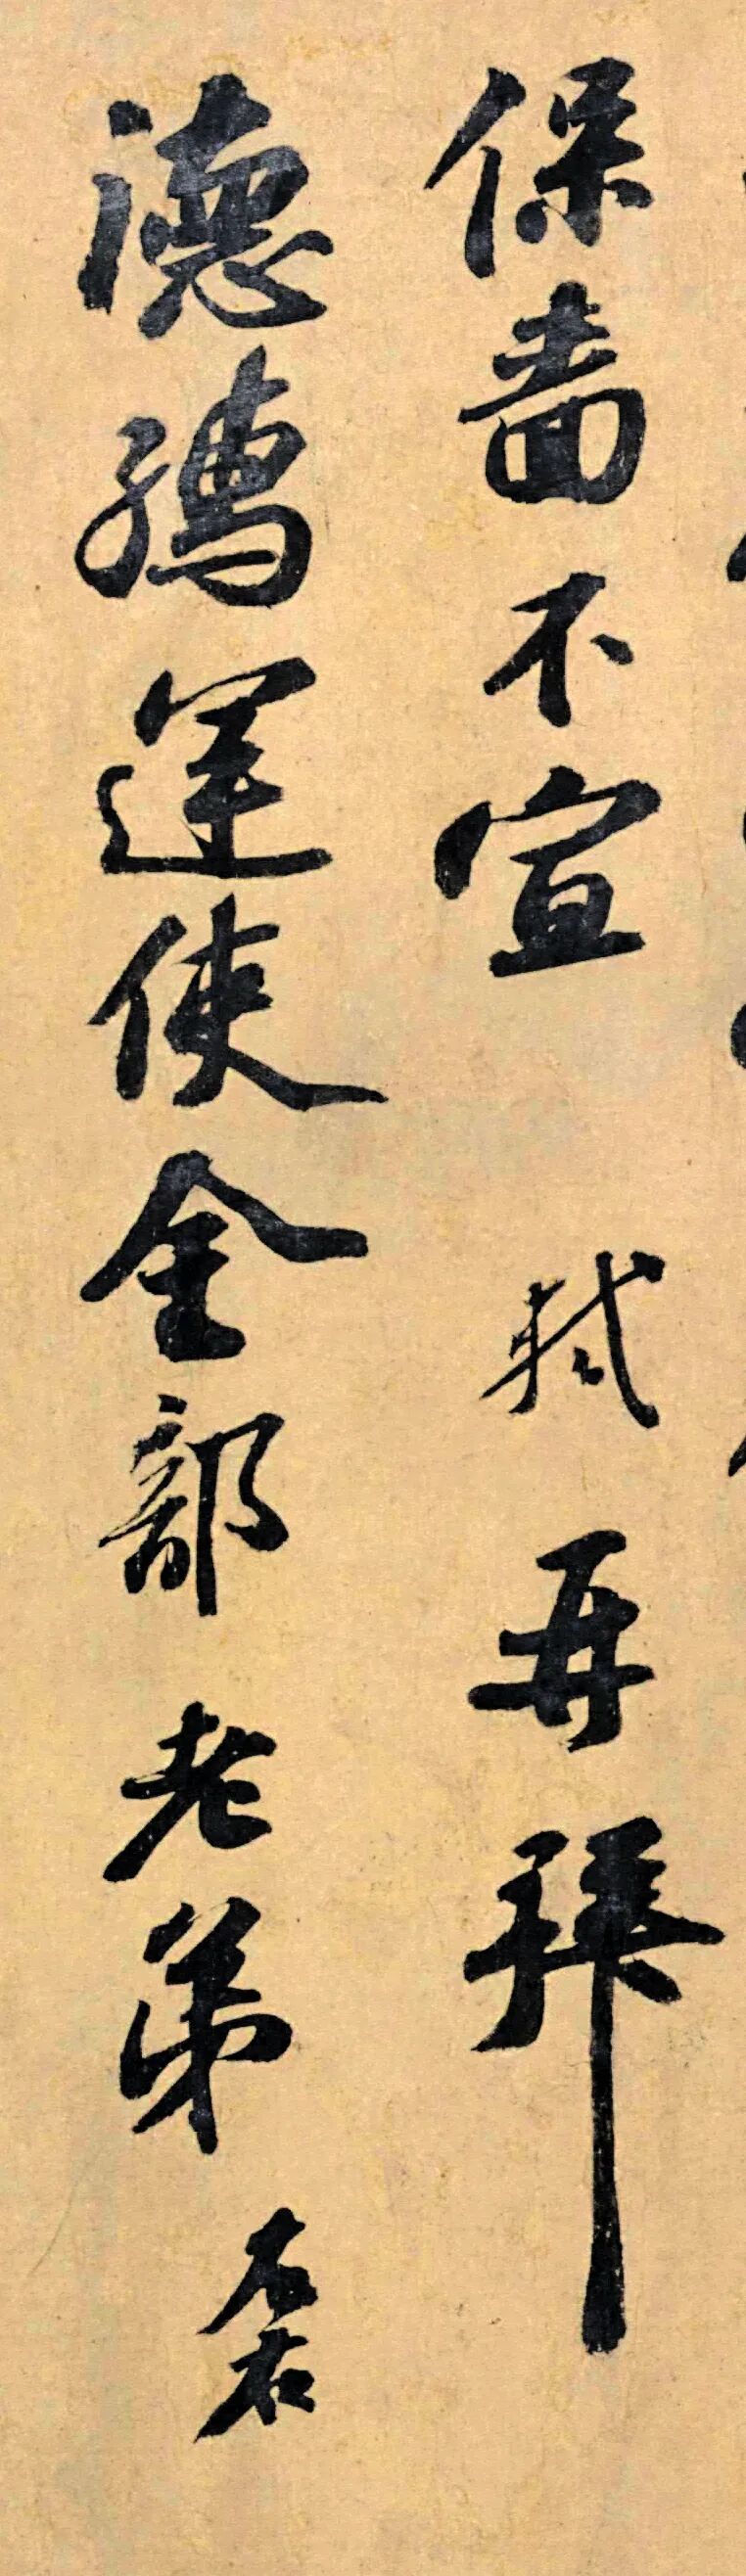 保嗇不宣 軾再拜
德孺運使金部老弟左右